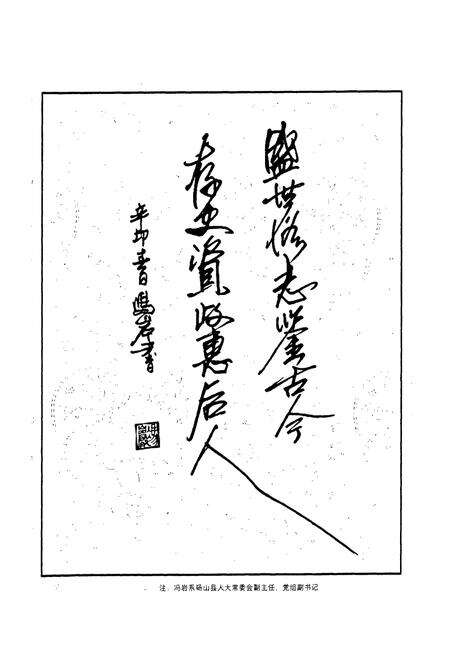 盛世修志鉴古今
存史资政惠后人
辛卯春日冯岩书
注：冯岩系砀山县人大常委会副主任、党组副书记